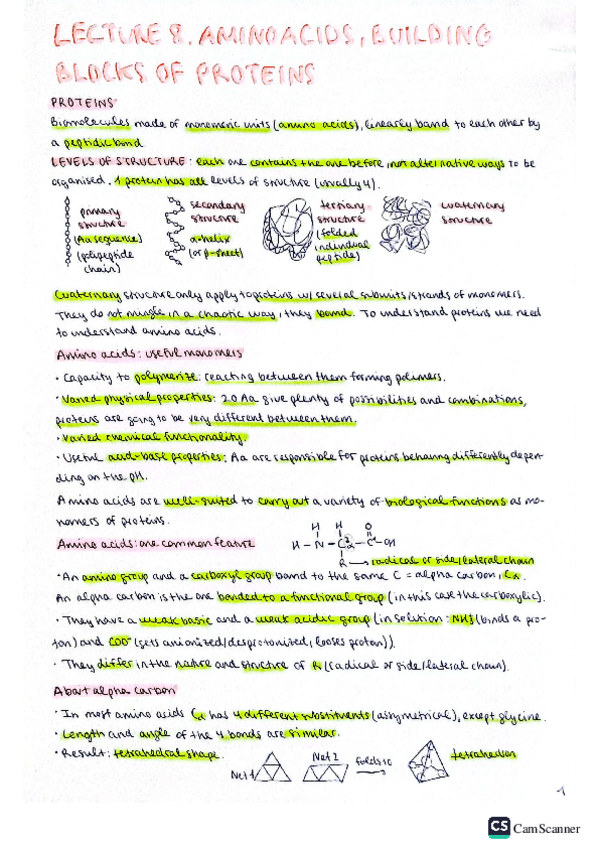 LECTURE 8. AMINOACIDS, BUILDING
BLOCKS OF PROTEINS
PROTEINS
Biomolecules made of monomeric units (amino acids), linearly band to each other by
a peptidic bond
LEVELS OF STRUCTURE: each one contains the one before, not alternative ways to be
organised. 1 protein has all levels of structure (usually 4).
primary
structure
(Aa sequence)
(polipeptide
chain)
secondary
structure
α-helix
(or β-sheet)
tertiary
structure
(folded
individual
peptide)
cuaternary
structure
Cuaternary structure only apply to proteins w/ several subunits/strands of monomers.
They do not mingle in a chaotic way, they band. To understand proteins we need
to understand amino acids.
Amino acids: useful monomers
· Capacity to polymerize: reacting between them forming polimers.
· Varied physical properties: 20 Aa give plenty of possibilities and combinations,
proteins are going to be very different between them.
· Varied chemical functionality.
· Useful acid-base properties: Aa are responsible for proteins behaving differently depen-
ding on the pH.
Amino acids are well-suited to carry out a variety of biological functions as mo-
nomers of proteins.
Amino acids: one common feature
H H O
H - N - Cα - C - OH
R → radical or side/lateral chain
· An amino group and a carboxyl group band to the same C = alpha carbon, Cα.
An alpha carbon is the one bonded to a functional group (in this case the carboxylic).
· They have a weak basic and a weak acidic group (in solution: NH3 (binds a pro-
ton) and COO⁻ (gets anionized/desprotonized, looses proton)).
· They differ in the nature and structure of R (radical or side/lateral chain).
Abart alpha carbon
· In most amino acids Cα has 4 different substituents (assymetrical), except glycine.
· Length and angle of the 4 bonds are similar.
· Result: tetrahedral shape.
Net 1
Net 2
folds to
tetrahedron
1
CS CamScanner